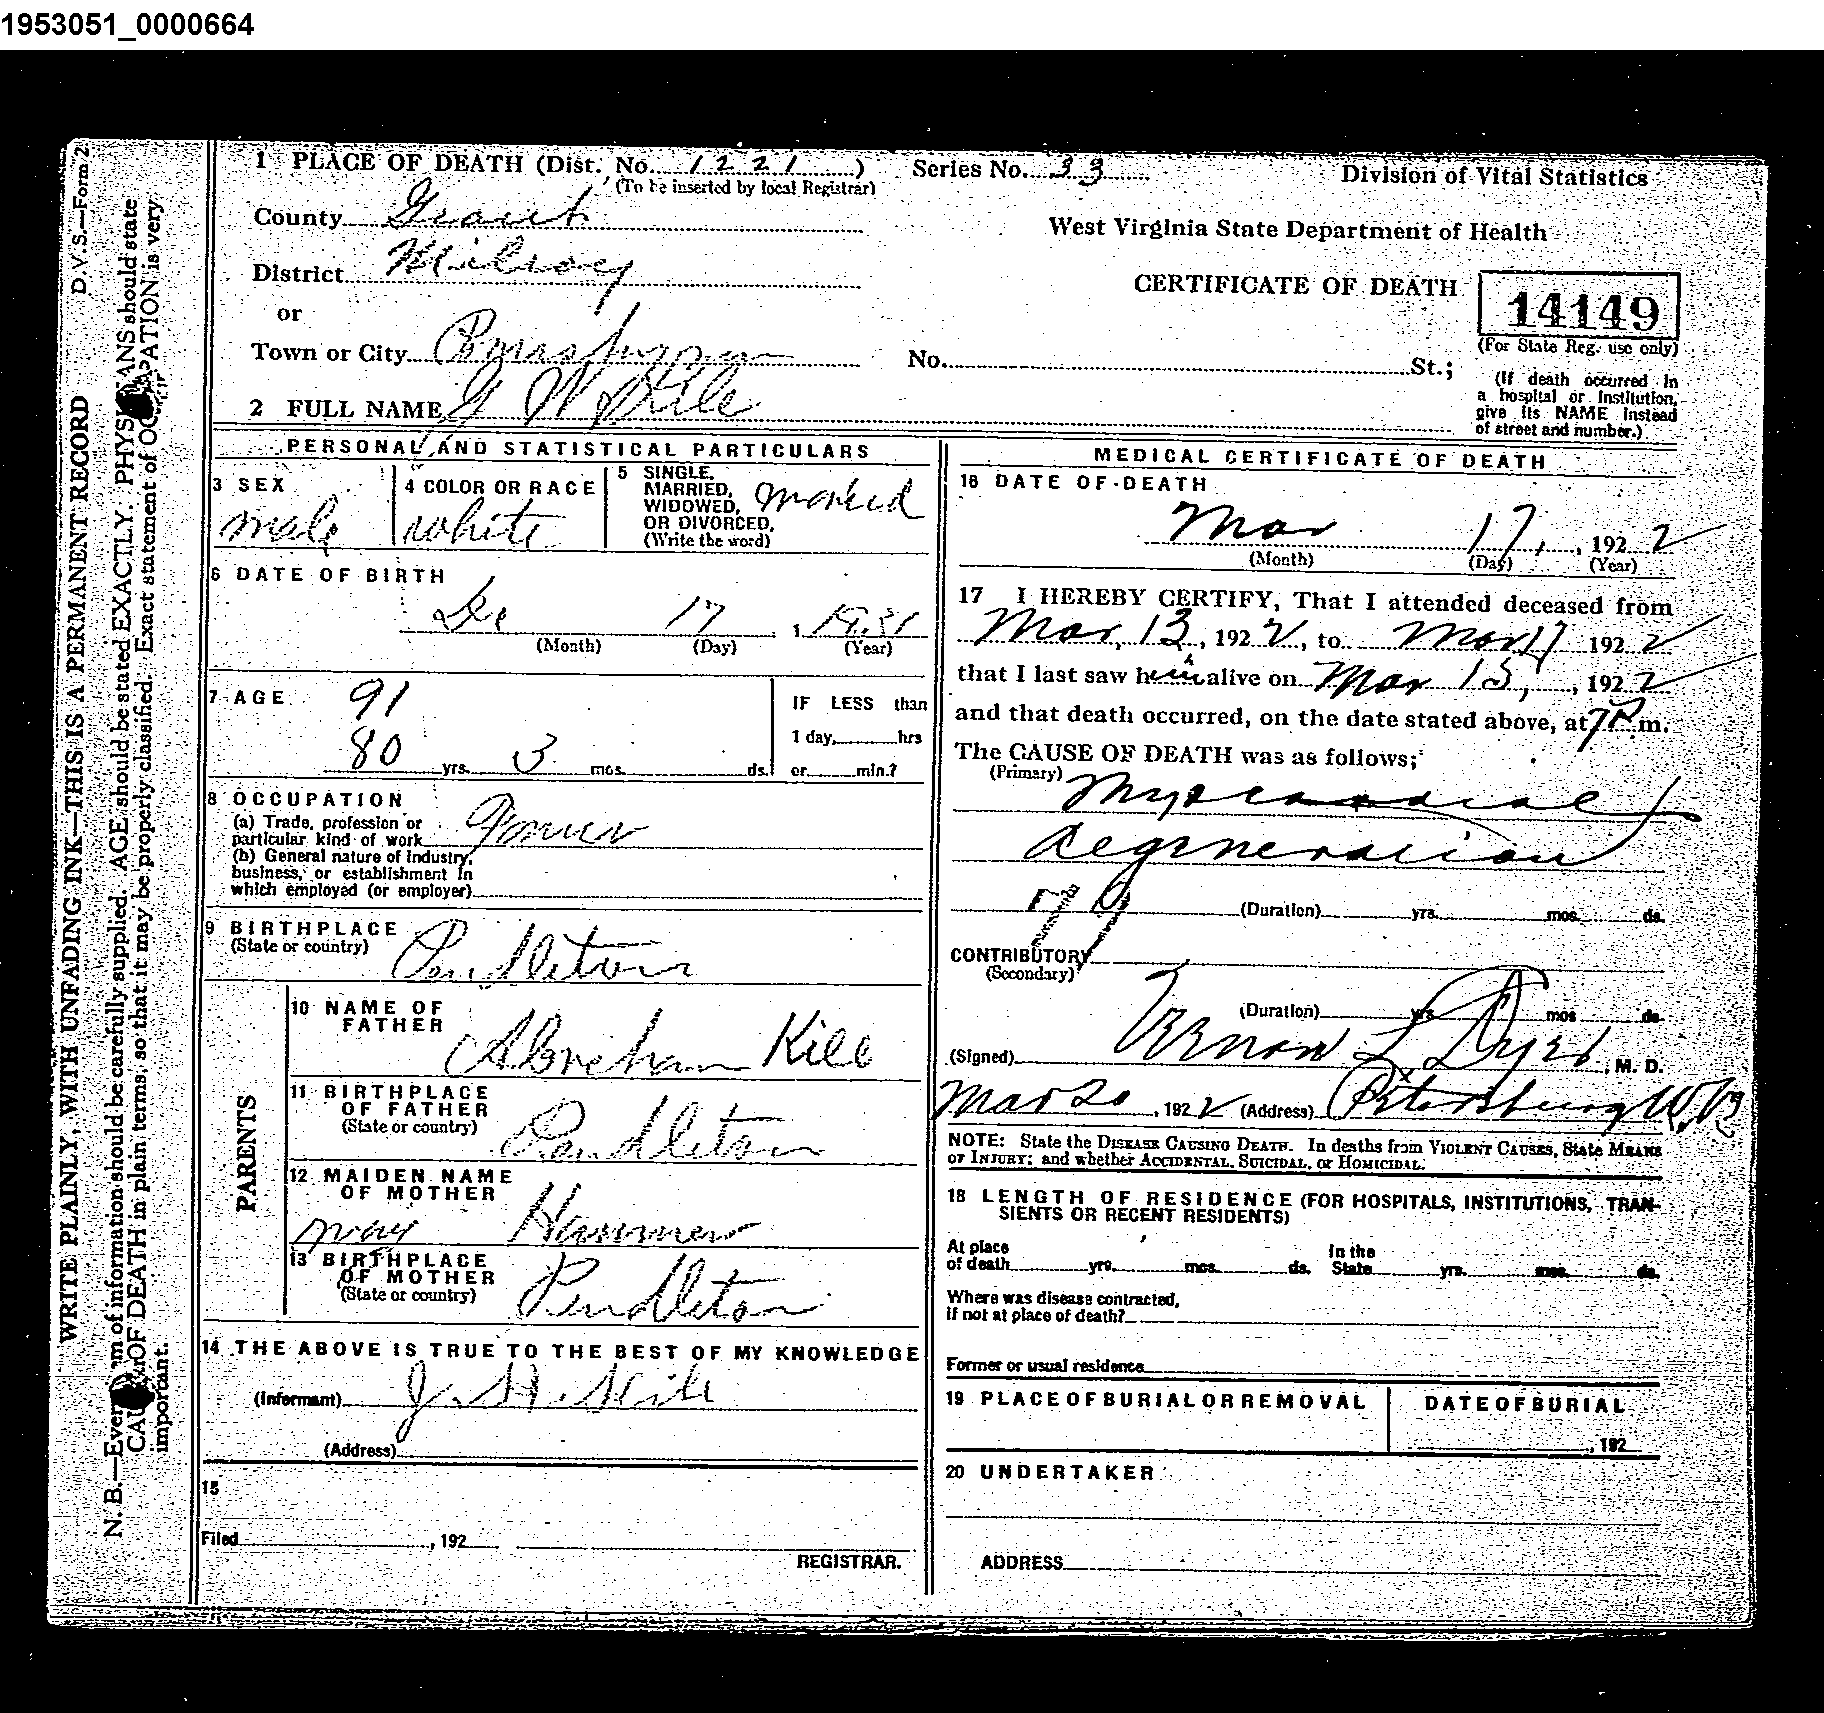 1953051_0000664
D.V.S.—Form 2
WRITE PLAINLY, WITH UNFADING INK—THIS IS A PERMANENT RECORD
N. B.—Every item of information should be carefully supplied. AGE should be stated EXACTLY. PHYSICIANS should state
CAUSE OF DEATH in plain terms, so that it may be properly classified. Exact statement of OCCUPATION is very
important.
1 PLACE OF DEATH (Dist. No. 1221) Series No. 33 Division of Vital Statistics
(To be inserted by local Registrar)
County Grant
West Virginia State Department of Health
District Milroy
CERTIFICATE OF DEATH 14149
or
(For State Reg. use only)
Town or City No. St.;
(If death occurred in
a hospital or institution,
give its NAME instead
of street and number.)
2 FULL NAME G W Kile
PERSONAL AND STATISTICAL PARTICULARS
3 SEX
male
4 COLOR OR RACE
white
5 SINGLE,
MARRIED,
WIDOWED,
OR DIVORCED,
(Write the word)
married
6 DATE OF BIRTH
Dec 17 1
(Month) (Day) (Year)
7 AGE 91
80 yrs. 3 mos. ds.
IF LESS than
1 day, hrs
or min.?
8 OCCUPATION
(a) Trade, profession or
particular kind of work Farmer
(b) General nature of industry,
business, or establishment in
which employed (or employer)
9 BIRTHPLACE
(State or country) Pendleton
PARENTS
10 NAME OF
FATHER Abraham Kile
11 BIRTHPLACE
OF FATHER
(State or country) Pendleton
12 MAIDEN NAME
OF MOTHER
Hammer
13 BIRTHPLACE
OF MOTHER
(State or country) Pendleton
14 THE ABOVE IS TRUE TO THE BEST OF MY KNOWLEDGE
(Informant) J. H. Kile
(Address)
15
Filed , 192
REGISTRAR.
MEDICAL CERTIFICATE OF DEATH
16 DATE OF DEATH
Mar 17, , 192 2
(Month) (Day) (Year)
17 I HEREBY CERTIFY, That I attended deceased from
Mar, 13, 192 2, to Mar 17 192 2
that I last saw him alive on Mar 15, , 192 2
and that death occurred, on the date stated above, at 7 P. m.
The CAUSE OF DEATH was as follows;
(Primary) Myocardial
degeneration
79 (Duration) yrs. mos. ds.
CONTRIBUTORY
(Secondary)
(Duration) yrs. mos. ds.
(Signed) Vernon L Dyer, M. D.
Mar 20, 192 2 (Address) Petersburg W.Va
NOTE: State the DISEASE CAUSING DEATH. In deaths from VIOLENT CAUSES, State MEANS
OF INJURY; and whether ACCIDENTAL, SUICIDAL, or HOMICIDAL.
18 LENGTH OF RESIDENCE (FOR HOSPITALS, INSTITUTIONS, TRAN-
SIENTS OR RECENT RESIDENTS)
At place
of death yrs. mos. ds.
In the
State yrs. mos. ds.
Where was disease contracted,
if not at place of death?
Former or usual residence
19 PLACE OF BURIAL OR REMOVAL
DATE OF BURIAL
, 192
20 UNDERTAKER
ADDRESS